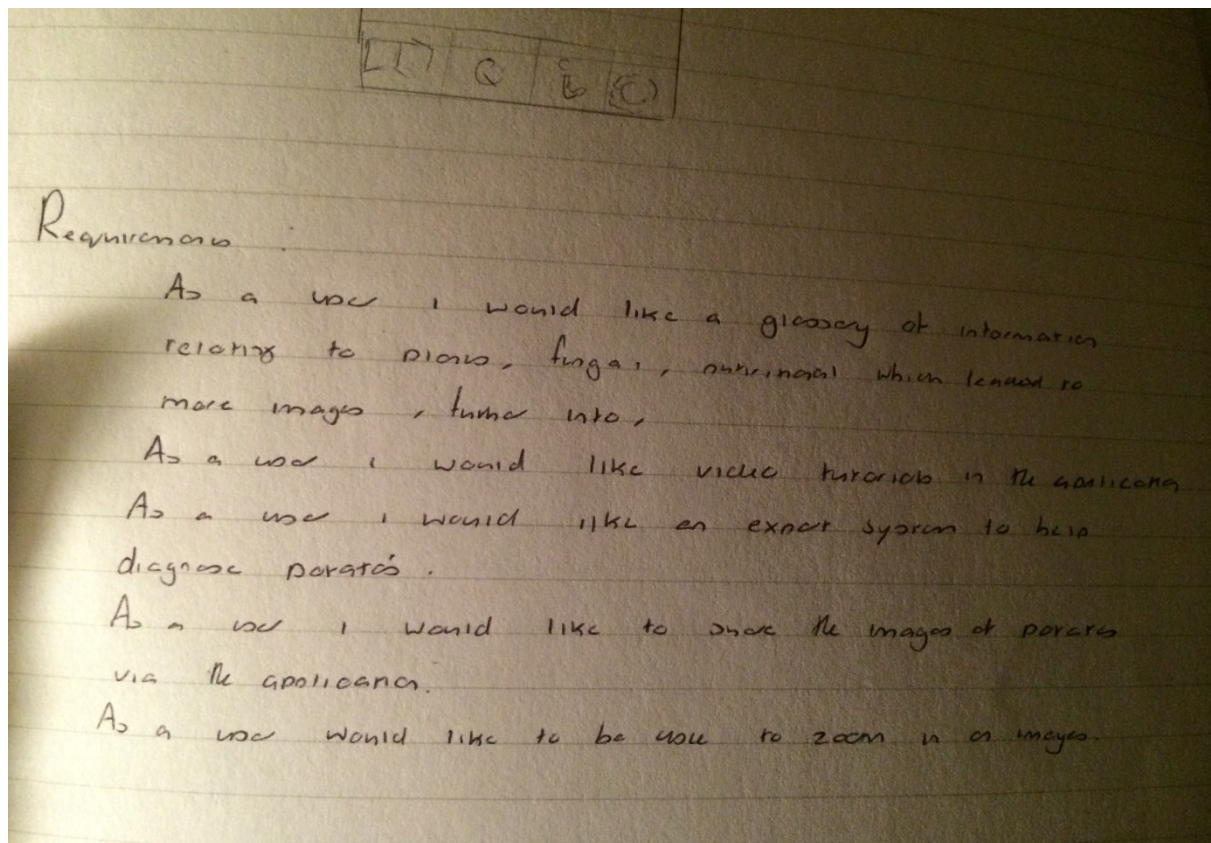 Requirements :
As a user I would like a glossary of information
relating to , fungal, which to
more images , further info,
As a user I would like video tutorials in the application
As a user I would like an expert system to help
diagnose .
As a user I would like to share the images of
via the application.
As a user would like to be able to zoom in on images.